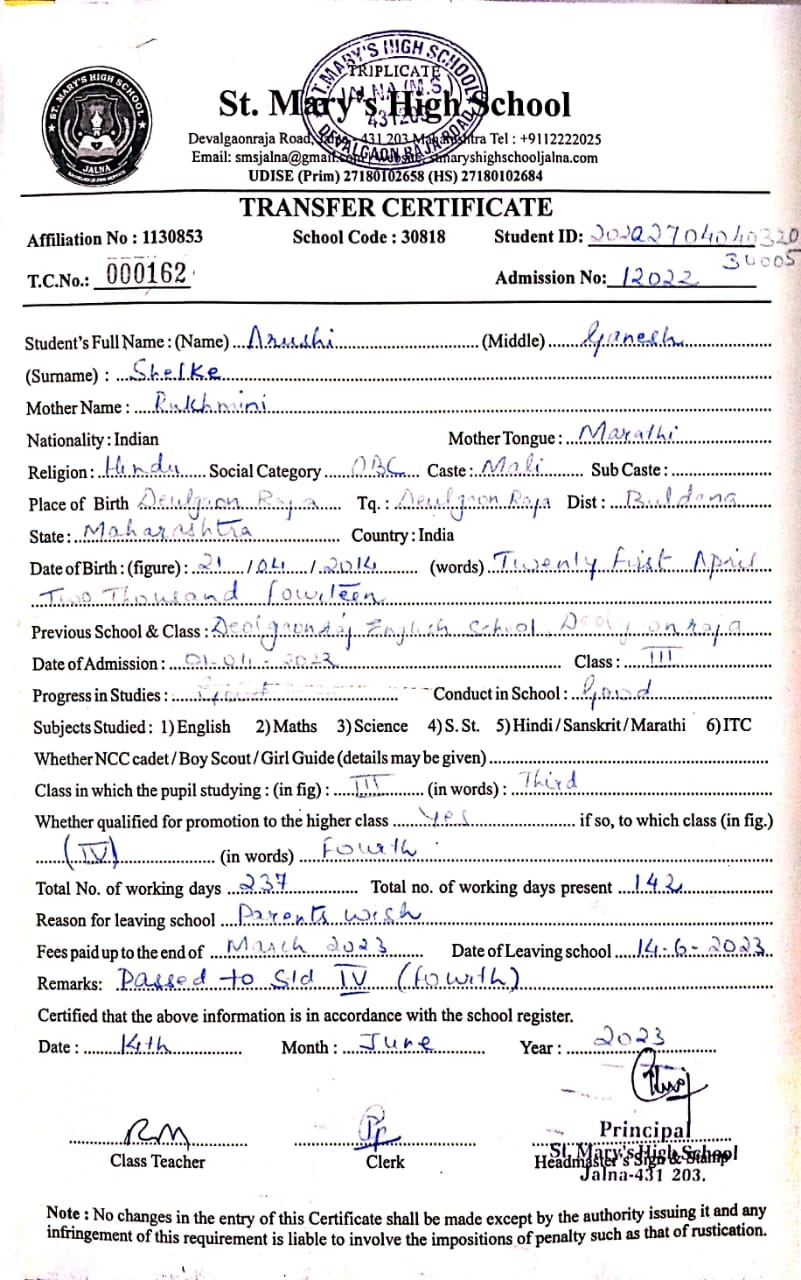 ST. MARY'S HIGH SCHOOL
JALNA
ST. MARY'S HIGH SCHOOL
JALNA (M.S.)
DEVALGAON RAJA ROAD,
TRIPLICATE
St. Mary's High School
Devalgaonraja Road, - 431 203 Maharashtra Tel : +9112222025
Email: smsjalna@gmail.com stmaryshighschooljalna.com
UDISE (Prim) 27180102658 (HS) 27180102684
TRANSFER CERTIFICATE
Affiliation No : 1130853 School Code : 30818 Student ID: 20222704040320
30005
T.C.No.: 000162 Admission No: 12022
Student's Full Name : (Name) Arushi (Middle) Ganesh
(Surname) : Shelke
Mother Name : Rukhmini
Nationality : Indian Mother Tongue : Marathi
Religion : Hindu Social Category OBC Caste : Mali Sub Caste :
Place of Birth Deulgaon Raja Tq. : Deulgaon Raja Dist : Buldana
State : Maharashtra Country : India
Date of Birth : (figure) : 21 / 04 / 2014 (words) Twenty First April
Two Thousand Fourteen
Previous School & Class : Deolgaonraj English School, Deolgaonraja
Date of Admission : 01-04-2022 Class : III
Progress in Studies : Conduct in School : Good
Subjects Studied : 1) English 2) Maths 3) Science 4) S. St. 5) Hindi / Sanskrit / Marathi 6) ITC
Whether NCC cadet / Boy Scout / Girl Guide (details may be given)
Class in which the pupil studying : (in fig) : III (in words) : Third
Whether qualified for promotion to the higher class Yes if so, to which class (in fig.)
(IV) (in words) Fourth
Total No. of working days 237 Total no. of working days present 142
Reason for leaving school Parents wish
Fees paid up to the end of March 2023 Date of Leaving school 14-6-2023
Remarks: Passed to Std IV (fowith)
Certified that the above information is in accordance with the school register.
Date : 14th Month : June Year : 2023
Class Teacher Clerk Principal
St. Mary's High School
Headmaster's Sign & Stamp
Jalna-431 203.
Note : No changes in the entry of this Certificate shall be made except by the authority issuing it and any
infringement of this requirement is liable to involve the impositions of penalty such as that of rustication.